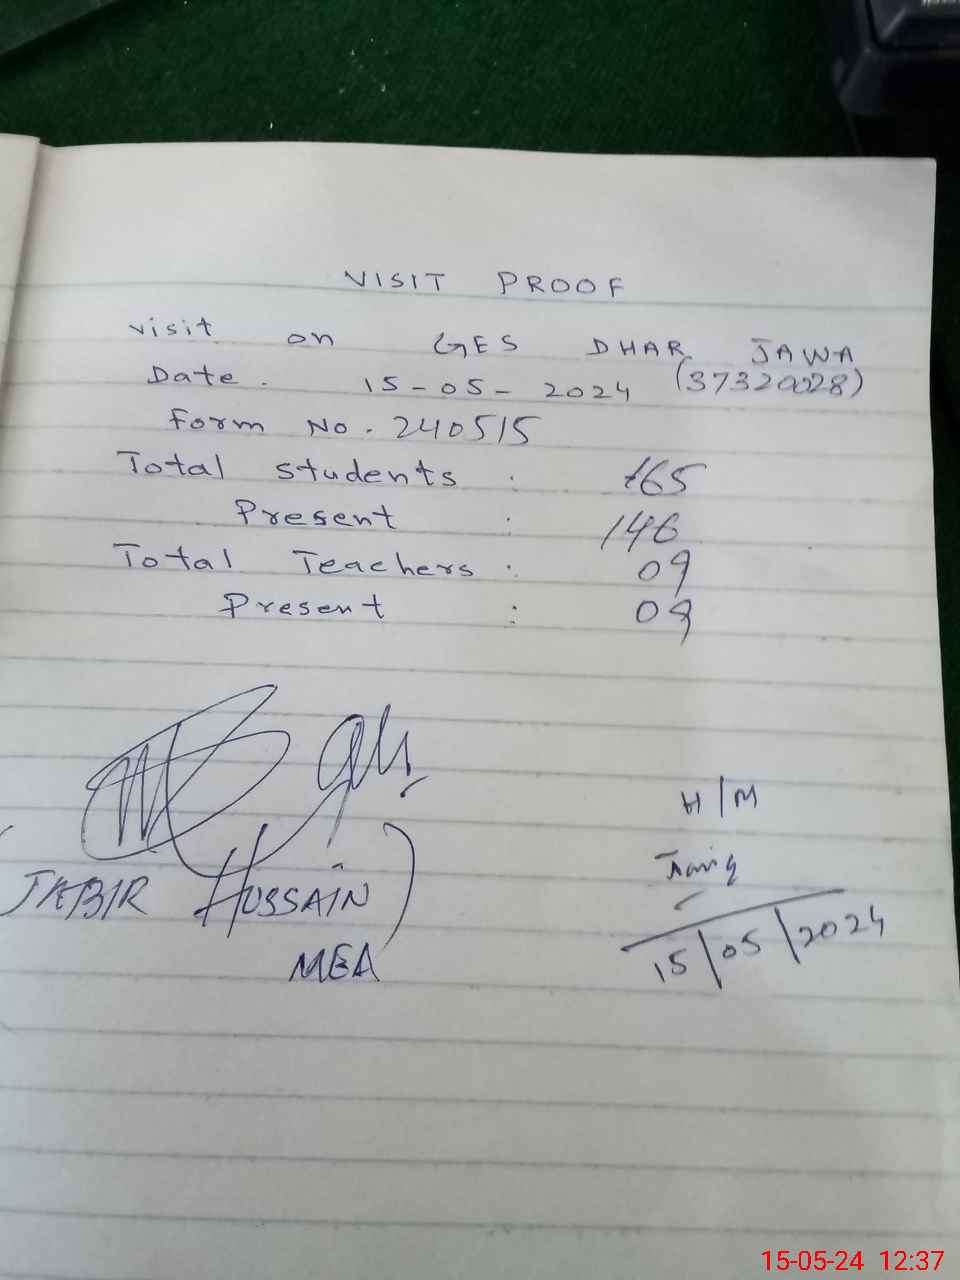 VISIT PROOF
visit on GES DHAR JAWA
Date. 15-05-2024 (37320028)
Form No. 240515
Total students : 165
Present : 146
Total Teachers : 09
Present : 09
H/M
JABIR HUSSAIN)
MEA
15/05/2024
15-05-24 12:37